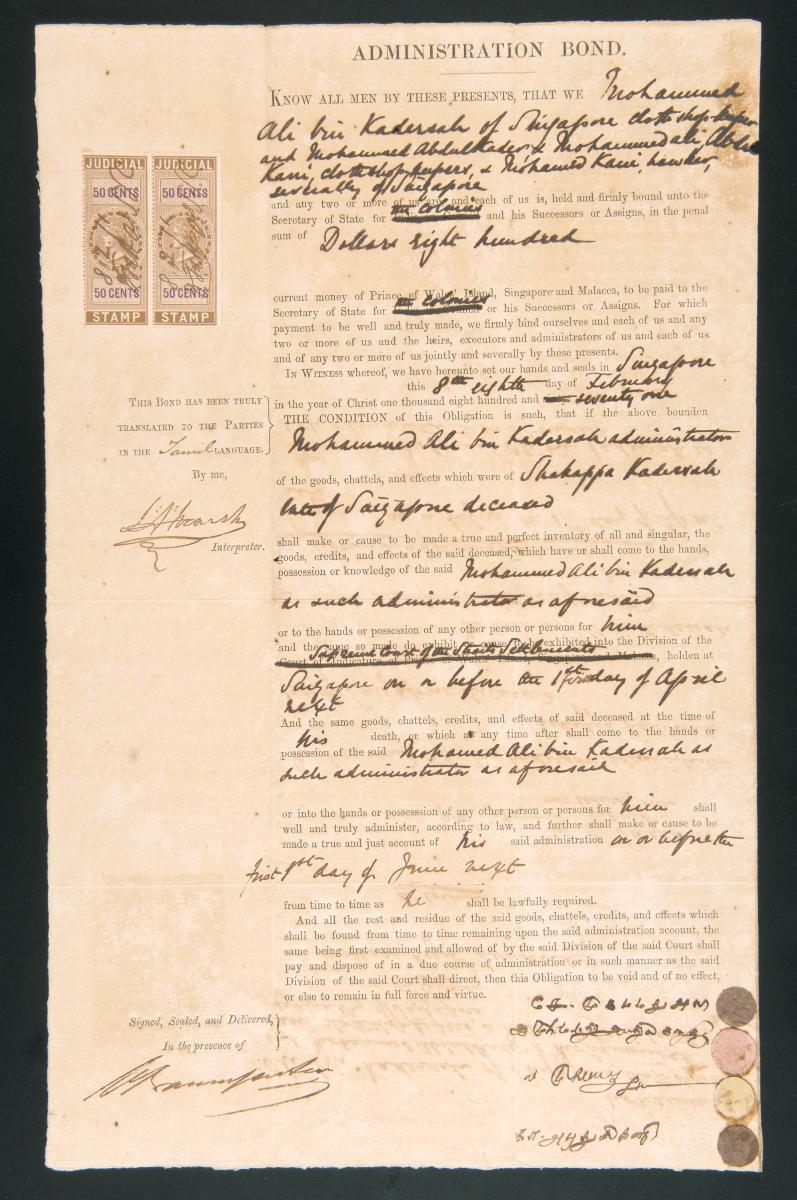 ADMINISTRATION BOND.
KNOW ALL MEN BY THESE PRESENTS, THAT WE Mohammed
Ali bin Kadersah of Singapore cloth shop keeper
and Mohammed Abdul Kader & Mohammed Ali, Abdul
Kani, cloth shop keepers, & Mohamed Kani, hawker,
severally of Singapore
and any two or more of us are and each of us is, held and firmly bound unto the
Secretary of State for the Colonies and his Successors or Assigns, in the penal
sum of Dollars eight hundred
current money of Prince of Wales' Island, Singapore and Malacca, to be paid to the
Secretary of State for the Colonies or his Successors or Assigns. For which
payment to be well and truly made, we firmly bind ourselves and each of us and any
two or more of us and the heirs, executors and administrators of us and each of us
and of any two or more of us jointly and severally by these presents.
IN WITNESS whereof, we have hereunto set our hands and seals in Singapore
this 8th eighth day of February
in the year of Christ one thousand eight hundred and seventy one
THE CONDITION of this Obligation is such, that if the above bounden
Mohammed Ali bin Kadersah administrator
of the goods, chattels, and effects which were of Shakappa Kadersah
late of Singapore deceased
shall make or cause to be made a true and perfect inventory of all and singular, the
goods, credits, and effects of the said deceased, which have or shall come to the hands,
possession or knowledge of the said Mohammed Ali bin Kadersah
as such administrator as aforesaid
or to the hands or possession of any other person or persons for him
and the same so made do exhibit or cause to be exhibited into the Division of the
Supreme Court of the Straits Settlements holden at
Singapore on or before the 1st first day of April
next
And the same goods, chattels, credits, and effects of said deceased at the time of
his death, or which at any time after shall come to the hands or
possession of the said Mohamed Ali bin Kadersah as
such administrator as aforesaid
or into the hands or possesssion of any other person or persons for him shall
well and truly administer, according to law, and further shall make or cause to be
made a true and just account of his said administration on or before the
first 1st day of June next
from time to time as he shall be lawfully required.
And all the rest and residue of the said goods, chattels, credits, and effects which
shall be found from time to time remaining upon the said administration account, the
same being first examined and allowed of by the said Division of the said Court shall
pay and dispose of in a due course of administration or in such manner as the said
Division of the said Court shall direct, then this Obligation to be void and of no effect,
or else to remain in full force and virtue.
JUDICIAL JUDICIAL
50 CENTS 50 CENTS
50 CENTS 50 CENTS
STAMP STAMP
THIS BOND HAS BEEN TRULY
TRANSLATED TO THE PARTIES
IN THE Tamil LANGUAGE.
By me,
Interpreter.
Signed, Sealed, and Delivered,
In the presence of